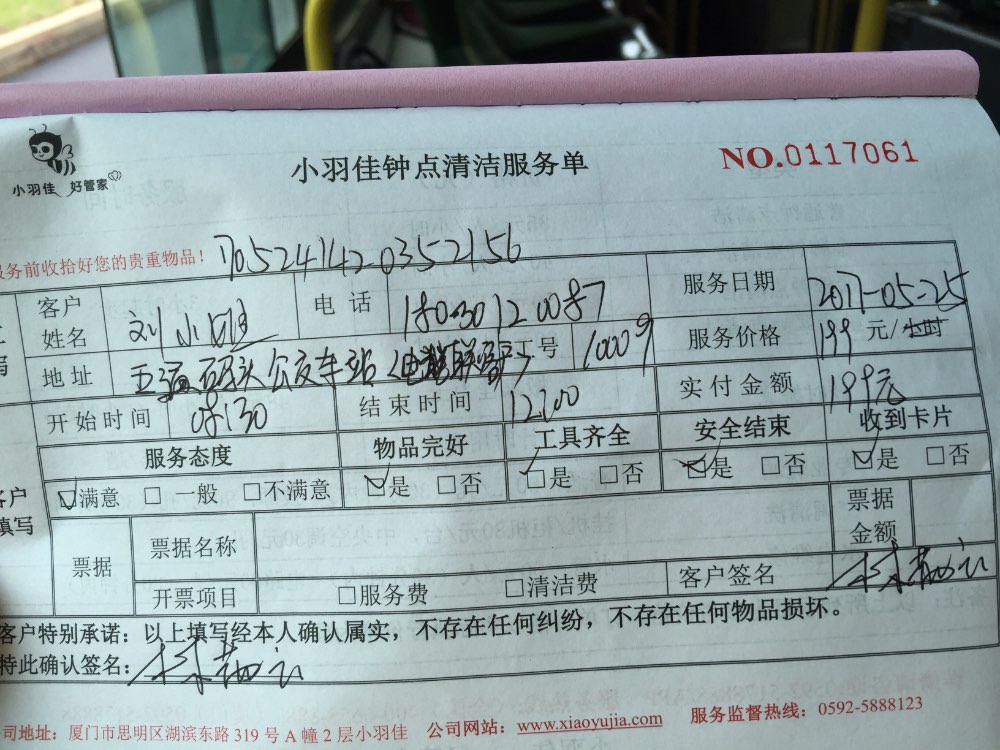 小羽佳 好管家
小羽佳钟点清洁服务单
NO.0117061
务前收拾好您的贵重物品！
1705241420352156
客户姓名 刘小姐 电话 18030120087 服务日期 2017-05-25
地址 码头公交车站 工号 10009 服务价格 199 元/小时
开始时间 08:30 结束时间 12:00 实付金额 199元
服务态度 物品完好 工具齐全 安全结束 收到卡片
☑满意 □一般 □不满意 ☑是 □否 ☑是 □否 ☑是 □否 ☑是 □否
客户填写
票据 票据名称 票据金额
开票项目 □服务费 □清洁费 客户签名
客户特别承诺：以上填写经本人确认属实，不存在任何纠纷，不存在任何物品损坏。
特此确认签名：
司地址：厦门市思明区湖滨东路 319 号 A 幢 2 层小羽佳 公司网站：www.xiaoyujia.com 服务监督热线：0592-5888123